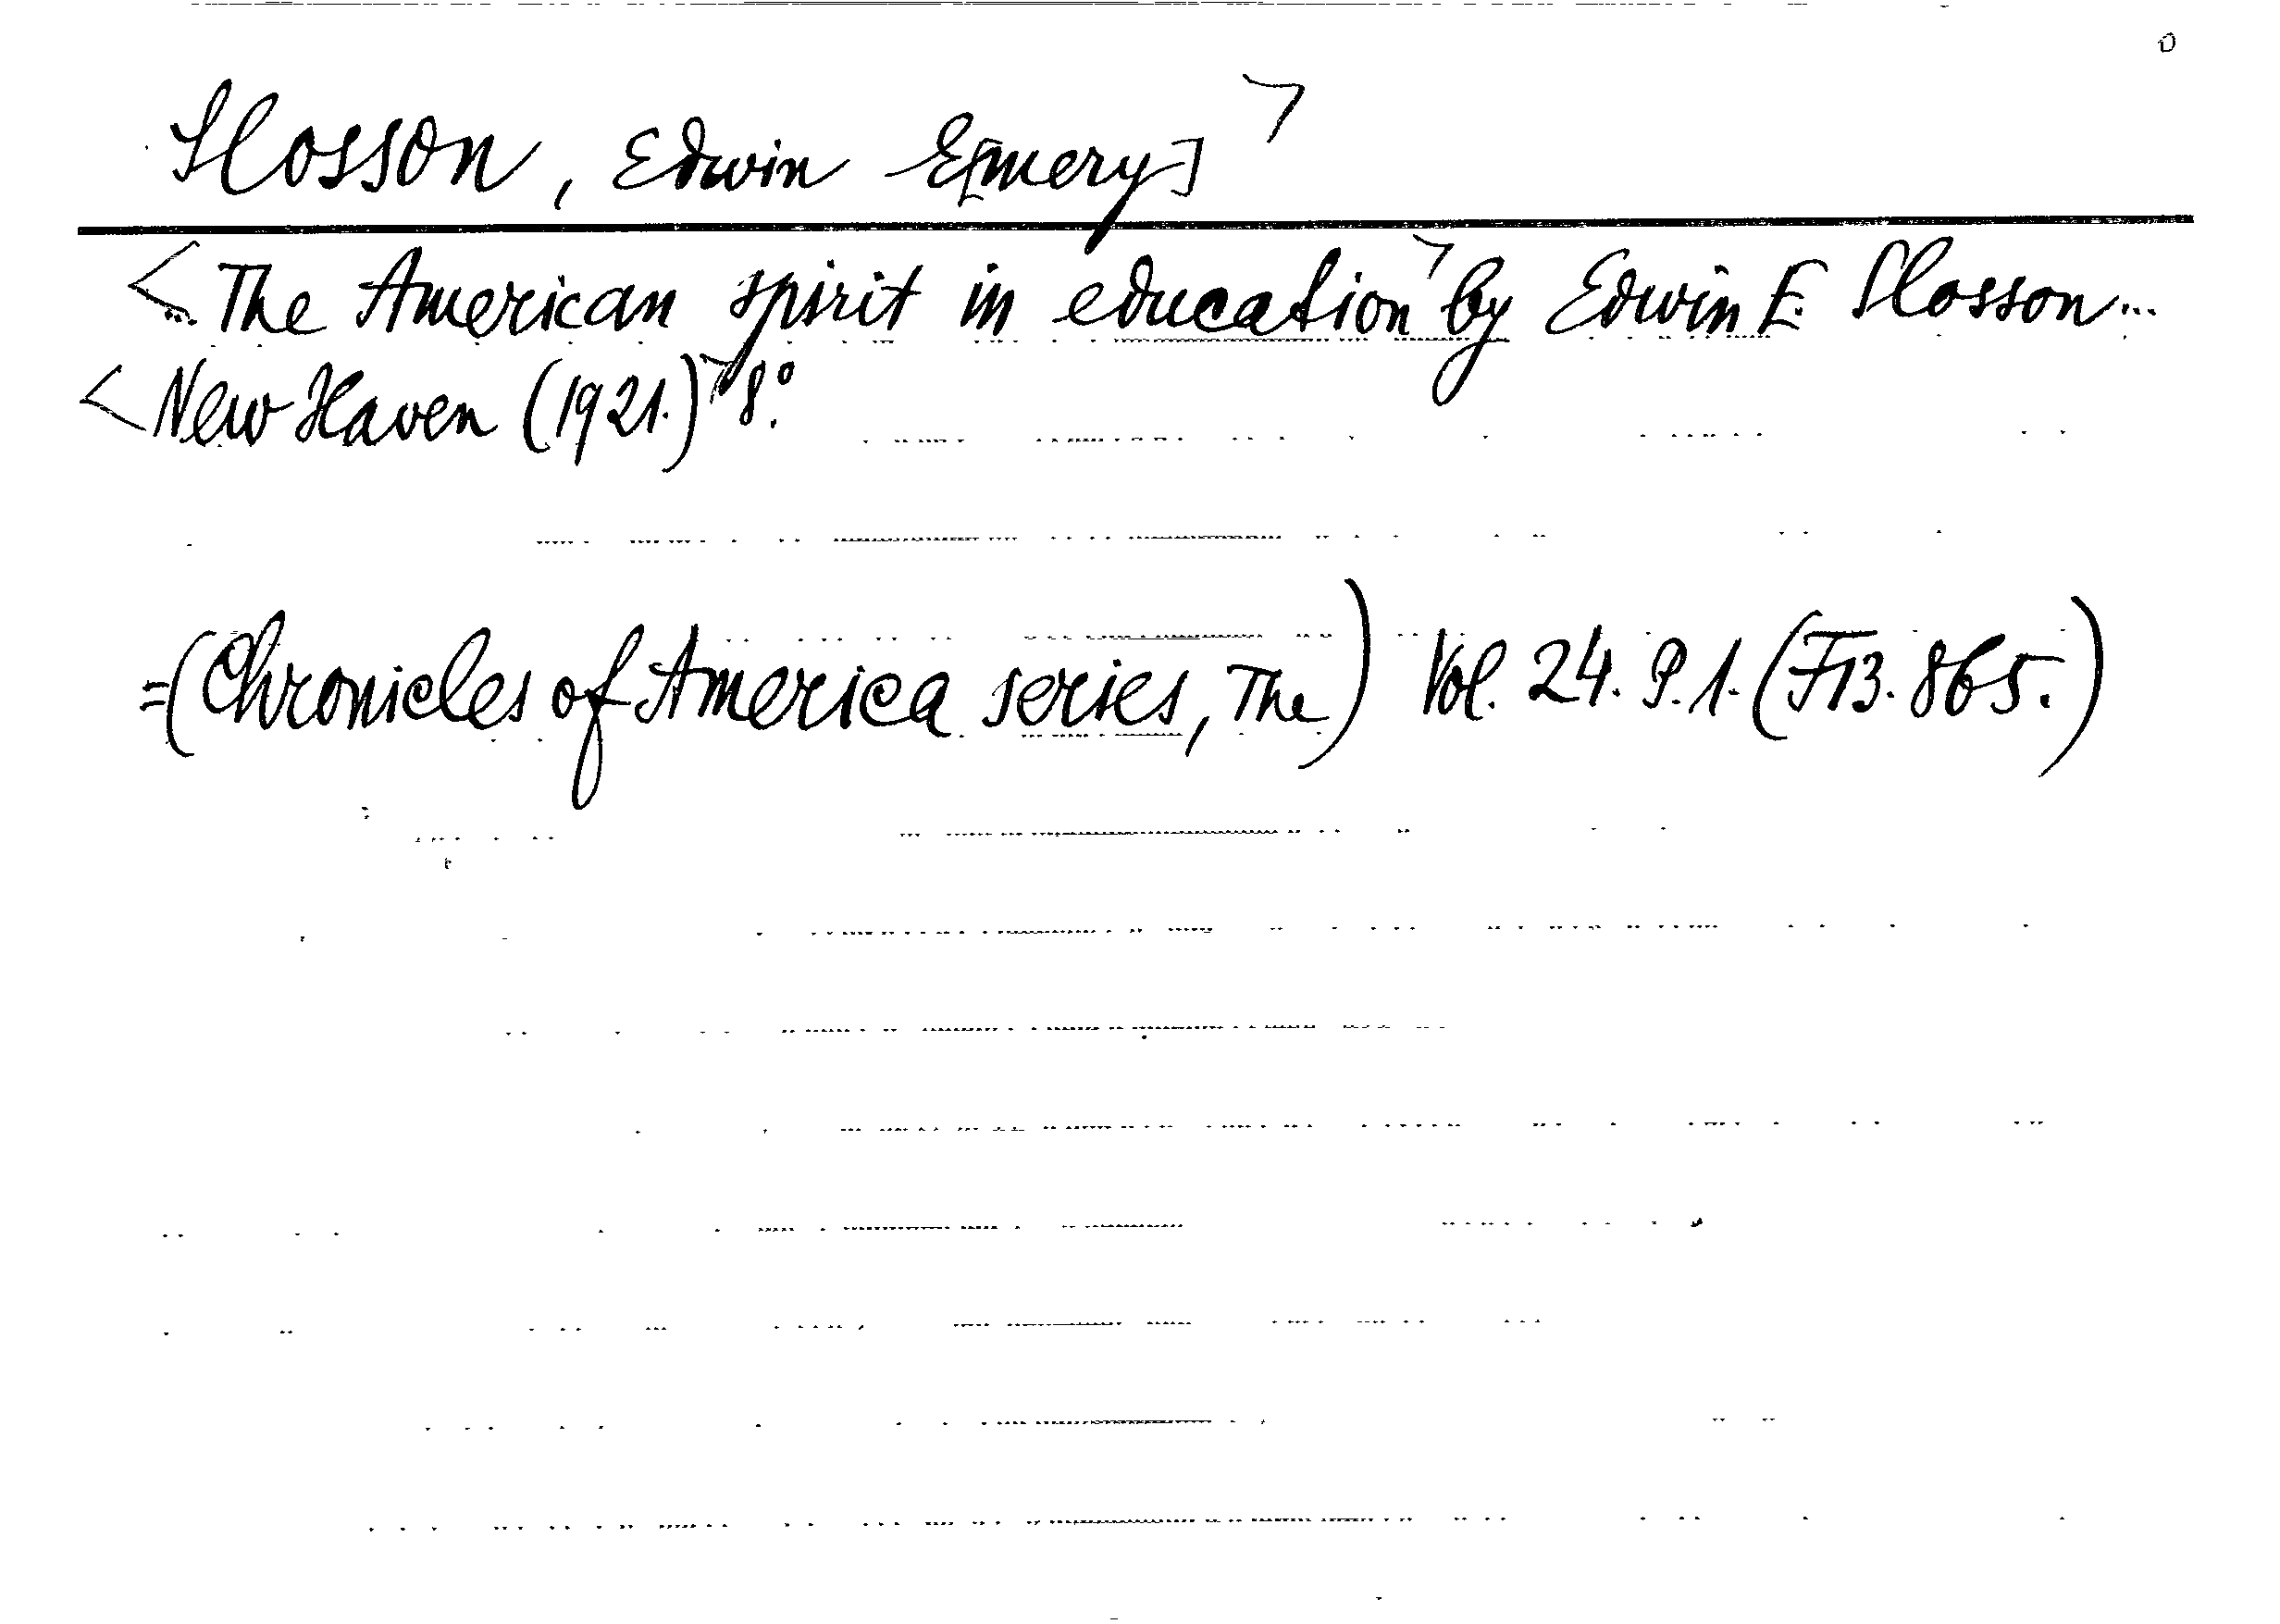 Slosson, Edwin E[mery]
The American spirit in education by Edwin E. Slosson...
New Haven (1921.) 8°.
=(Chronicles of America series, The) Vol. 24. P. 1. (F13. 865.)